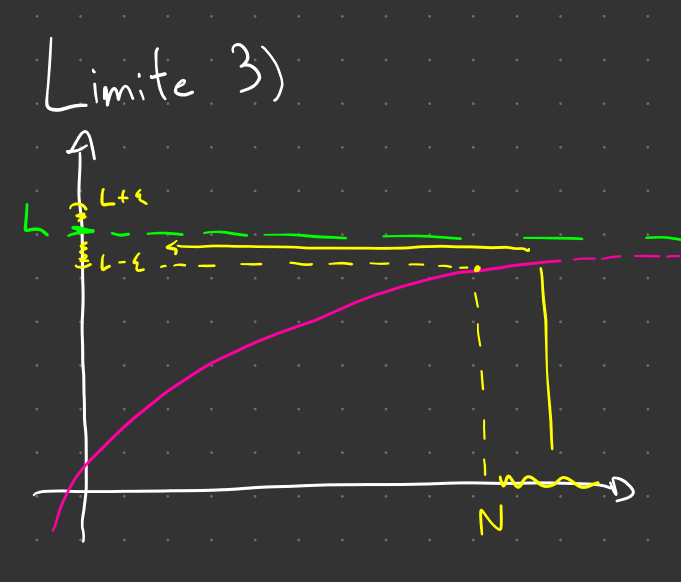 Limite 3)
L+ε
L
L-ε
N